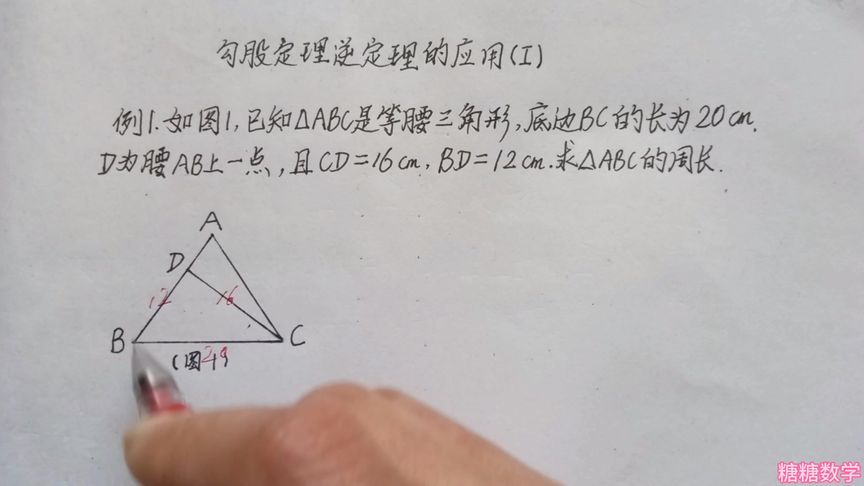 勾股定理逆定理的应用(I)
例1.如图1,已知△ABC是等腰三角形,底边BC的长为20cm.
D为腰AB上一点,且CD=16cm,BD=12cm.求△ABC的周长.
A
D
12
16
B
C
糖糖数学